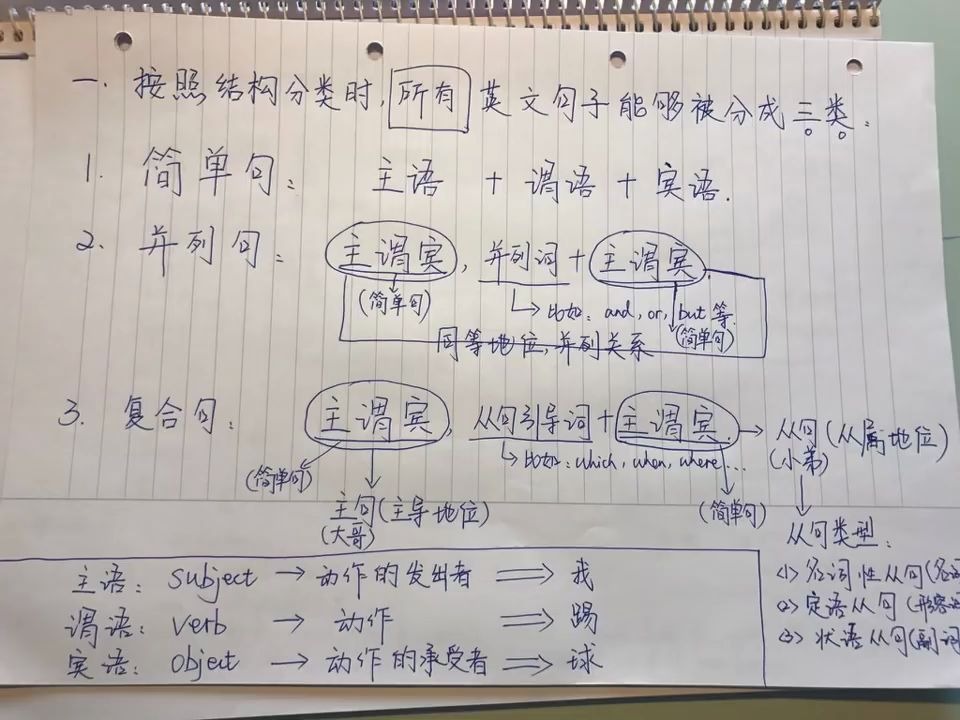 一. 按照结构分类时,所有英文句子能够被分成三类。
1. 简单句: 主语 + 谓语 + 宾语.
2. 并列句: 主谓宾, 并列词 + 主谓宾.
(简单句) → 比如: and, or, but 等. (简单句)
同等地位, 并列关系
3. 复合句: 主谓宾, 从句引导词 + 主谓宾. → 从句(从属地位)
(小弟)
(简单句) → 比如: which, when, where...
主句(主导地位) (简单句)
(大哥)
从句类型:
<1> 名词性从句(名词
<2> 定语从句(形容词
<3> 状语从句(副词
主语: subject → 动作的发出者 ⟹ 我
谓语: verb → 动作 ⟹ 踢
宾语: object → 动作的承受者 ⟹ 球